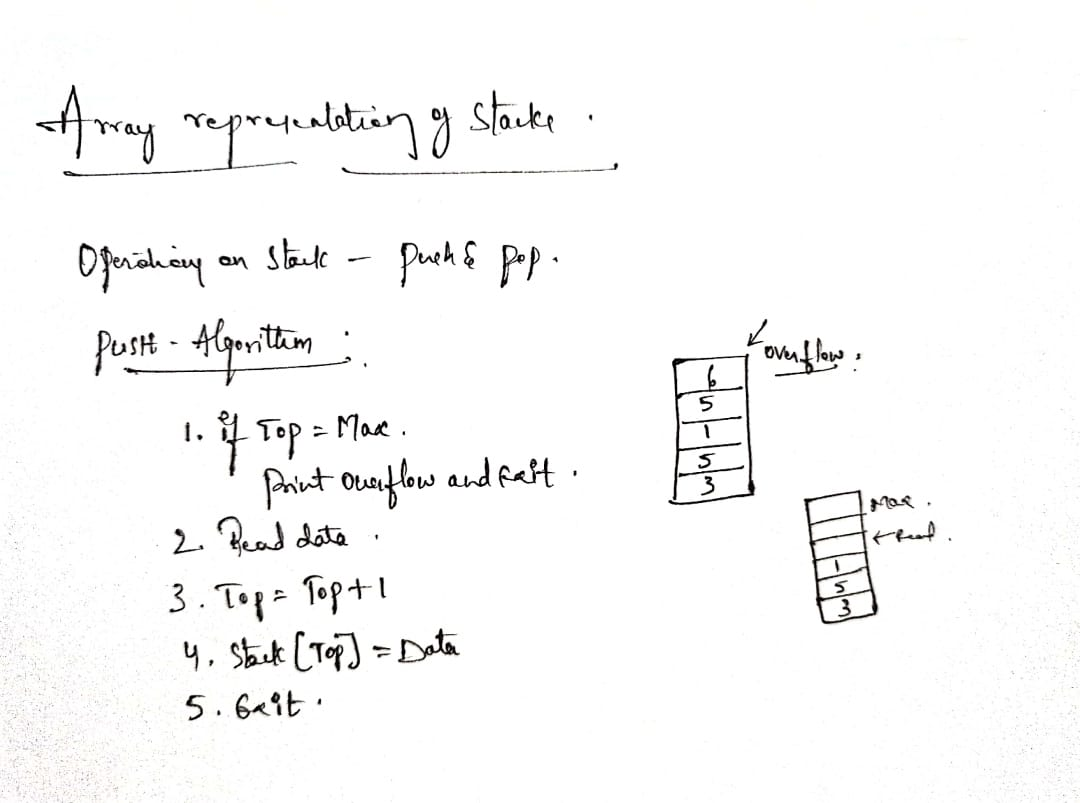 Array representation of Stacks.
Operations on Stack - push & pop.
PUSH - Algorithm :
1. if Top = Max.
Print overflow and Exit.
2. Read data.
3. Top = Top + 1
4. Stack [Top] = Data
5. Exit.
overflow.
6
5
1
5
3
Max.
1
5
3